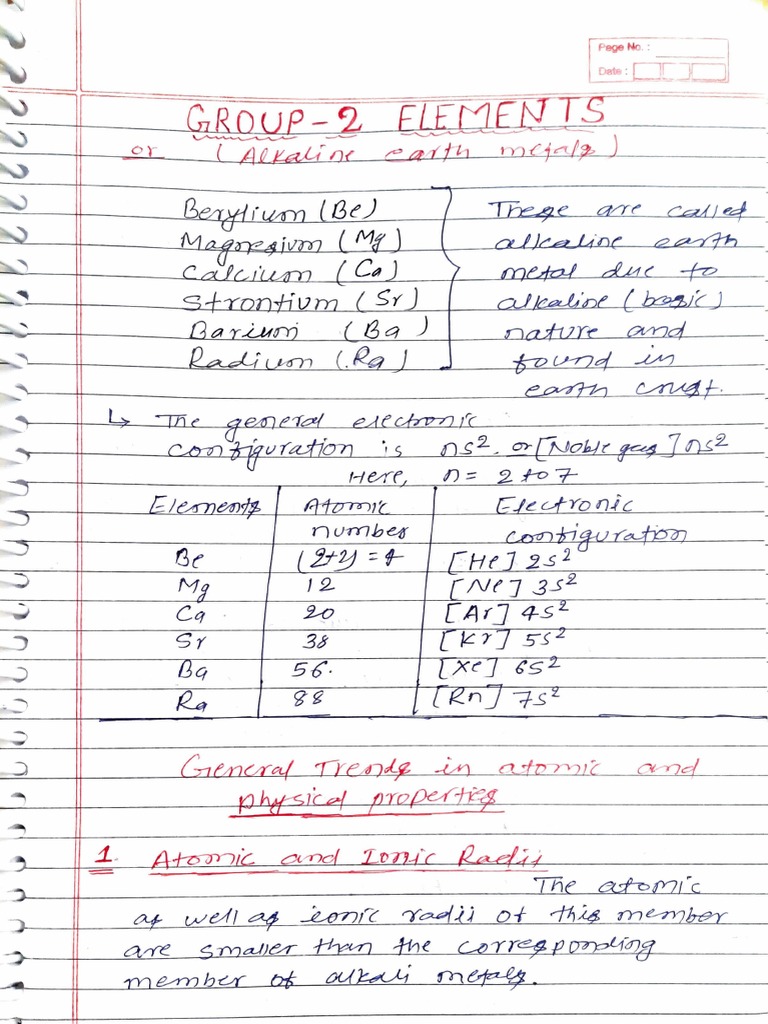 Page No. :
Date :
GROUP-2 ELEMENTS
or (Alkaline earth metals)
Berylium (Be)
Magnesium (Mg)
Calcium (Ca)
Strontium (Sr)
Barium (Ba)
Radium (Ra)
These are called
alkaline earth
metal due to
alkaline (basic)
nature and
found in
earth crust.
↳ The general electronic
configuration is ns², or [Noble gas] ns²
Here, n = 2 to 7
Elements | Atomic number | Electronic configuration
Be | (2+2) = 4 | [He] 2s²
Mg | 12 | [Ne] 3s²
Ca | 20 | [Ar] 4s²
Sr | 38 | [Kr] 5s²
Ba | 56. | [Xe] 6s²
Ra | 88 | [Rn] 7s²
General Trends in atomic and
physical properties
1. Atomic and Ionic Radii
The atomic
as well as ionic radii of this member
are smaller than the corresponding
member of alkali metals.